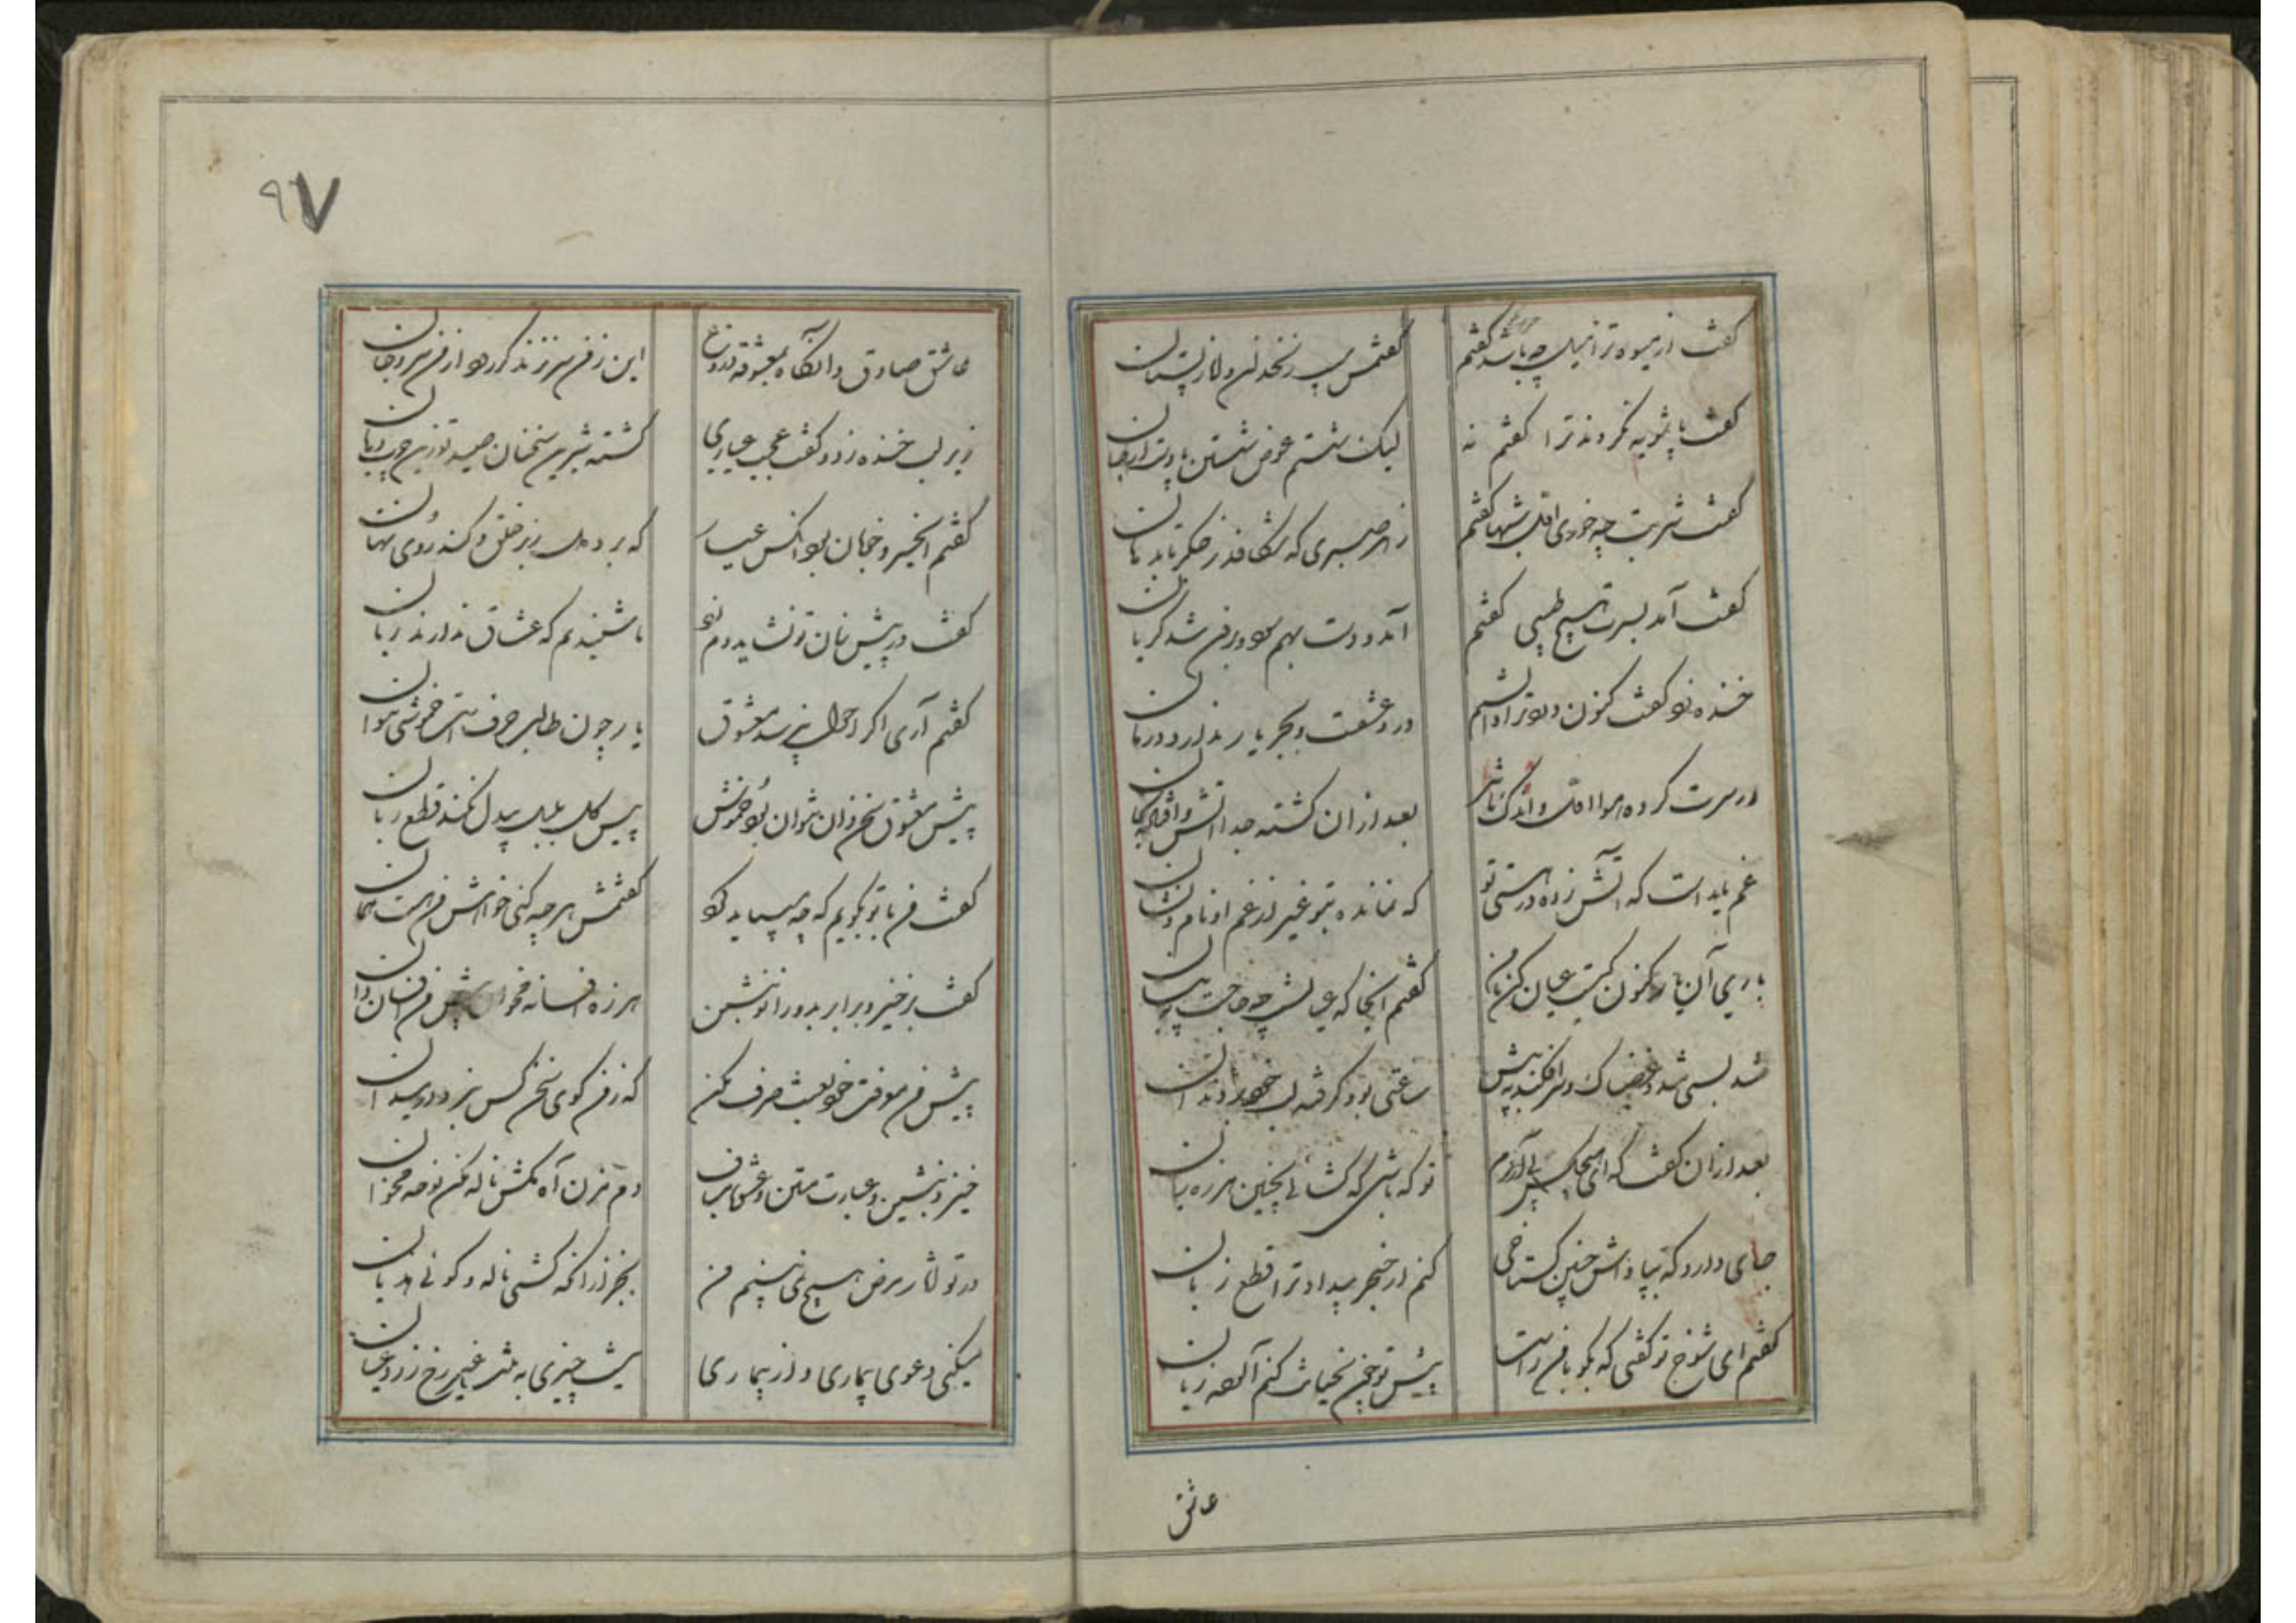 گفت از میوه ترا میل چه باشد گفتم
گفتمش سیب زنخدان و انار پستان
گفت پاشویه نکردند ترا گفتم نه
لیک شستم عوض شستن پا دست از جان
گفت شربت چه خوری اغلب شبها گفتم
ز هر صبری که شکافد ز جگر تا بدهان
گفت آمد بسرت هیچ طبیبی گفتم
آمد و دست بهم سود و بمن شد گریان
خنده نمود گفت کنون درد ترا دانستم
درد عشقست و بجز یار ندارد درمان
در سرت کرده هوا اول و اندک
بعد از آن گشته جدا آتش
غم یار است که آتش زده در هستی تو
که نمانده بتو غیر از غم او نام و نشان
باری آن یار کنون کیست عیان کن بامن
گفتم آنجا که عیانست چه حاجت به بیان
شد بسی شد غضبناک و سر افکند به پیش
ساعتی بود گرفته لب خود در دندان
بعد از آن گفت که ای
تو که باشی که گشائی بچنین هرزه زبان
جای دارد که بپاداش چنین گستاخی
کنم از خنجر بیداد ترا قطع زبان
گفتم ای شوخ تو گفتی که بگو با من راست
پیش تو من نخیانت کنم آلوده زبان
عاشق
۹۷
عاشق صادق و آنگاه بمعشوقه دروغ
این ز من سر نزند گر رود از من سر و جان
زیر لب خنده زد و گفت عجب عیاری
گشته شیرین سخنان صید تو زین چرب زبان
گفتم انجیر و خجان بود آنکس عیار
که برد دل ز بر خلق و کند روی نهان
گفت در پیش بتان تو نشاید دم زد
ما شنیدیم که عشاق ندارند زبان
گفتم آری اگر احوال نپرسد معشوق
یار چون طالب حرف است خموشی نتوان
پیش معشوق سخن دان نتوان بود خموش
پیش گل بلبل بیدل نکند قطع زبان
گفت من با تو بگویم که چه میباید کرد
گفتمش هر چه کنی خواهش من هست همان
گفت برخیز و برابر بدو زانو بنشین
هرزه افسانه مخوان پیش من افسان دان
پیش من موقت خود بعبث صرف مکن
که ز من گوی سخن کس نبرد در میدان
خیز و بنشین و عبارت متن و عشق مباف
دم مزن آه مکش ناله مکن نوحه مخوان
در تو آثار مرض هیچ نمی بینم من
بجز از آنکه کشی ناله و گوئی هذیان
میکنی دعوی بیماری و از بیماری
نیست چیزی به تنت غیر رخ زرد عیان